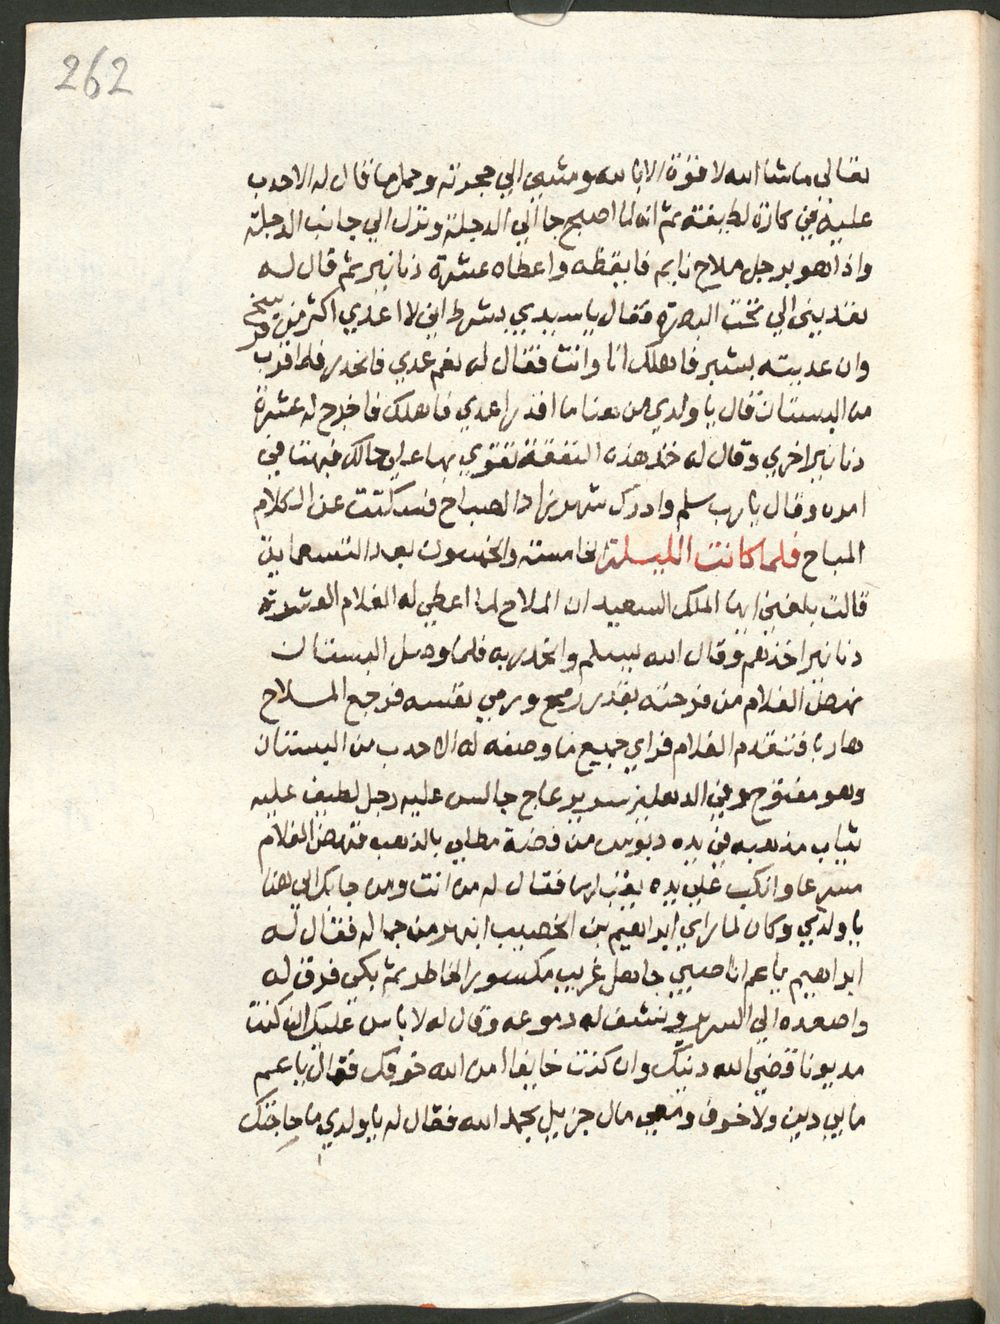 262
تعالي ماشا الله لا قوة الا بالله ومشي الي حجرته وحمل ما قال له الاحدب
عليه في كارة لطيفة ثم انه لما اصبح جا الي الدجلة ونزل الي جانب الدجلة
واذا هو برجل ملاح نايم فايقظه واعطاه عشرة دنانير ثم قال له
تعديني الي تحت البصرة فقال يا سيدي بشرط اني لا اعدي اكثر من فرسخ
وان عديته بشبر فاهلك انا وانت فقال له نعم عدي فانحدر فلما قرب
من البستان قال يا ولدي من هنا ما اقدر اعدي فاهلك فاخرج له عشرة
دنانير اخري وقال له خذ هذه النفقة تقوي بها علي حالك فبهت في
امره وقال يا رب سلم وادرك شهرزاد الصباح فسكتت عن الكلام
المباح فلما كانت الليلة الخامسة والخمسون بعد التسعماية
قالت بلغني ايها الملك السعيد ان الملاح لما اعطي له الغلام العشرة
دنانير اخذهم وقال الله يسلم وانحدر به فلما وصل البستان
نهض الغلام من فرحته بقدر رمح ورمي نفسه فرجع الملاح
هاربا فتقدم الغلام فراي جميع ما وصفه له الاحدب من البستان
وهو مفتوح وفي الدهليز سرير عاج جالس عليه رجل لطيف عليه
ثياب مذهبه في يده دبوس من فضة مطلي بالذهب فنهض الغلام
مسرعا وانكب علي يده يقبلها فقال له من انت ومن جابك الي هنا
يا ولدي وكان لما راي ابراهيم بن الخصيب انبهر من جماله فقال له
ابراهيم يا عم انا صبي جاهل غريب مكسور الخاطر ثم بكي فرق له
واصعده الي السرير ونشف له دموعه وقال له لا باس عليك ان كنت
مديونا قضي الله دينك وان كنت خايفا امن الله خوفك فقال يا عم
ما بي دين ولا خوف ومعي مال جزيل بحمد الله فقال له يا ولدي ما حاجتك